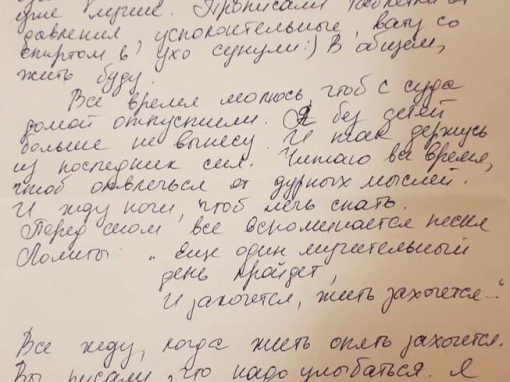 уже лучше. Прописали таблетки от
давления, успокоительные, вату со
спиртом в ухо сунули:) В общем,
жить буду.
Все время молюсь чтоб с суда
домой отпустили. Я без детей
больше не вынесу. И так держусь
из последних сил. Читаю все время,
чтоб отвлечься от дурных мыслей.
И жду ночи, чтоб лечь спать.
Перед сном все вспоминается песня
Лолиты: „еще один мучительный
день пройдет,
И захочется, жить захочется..."
Все жду, когда жить опять захочется.
Вы писали, что надо улыбаться. Я